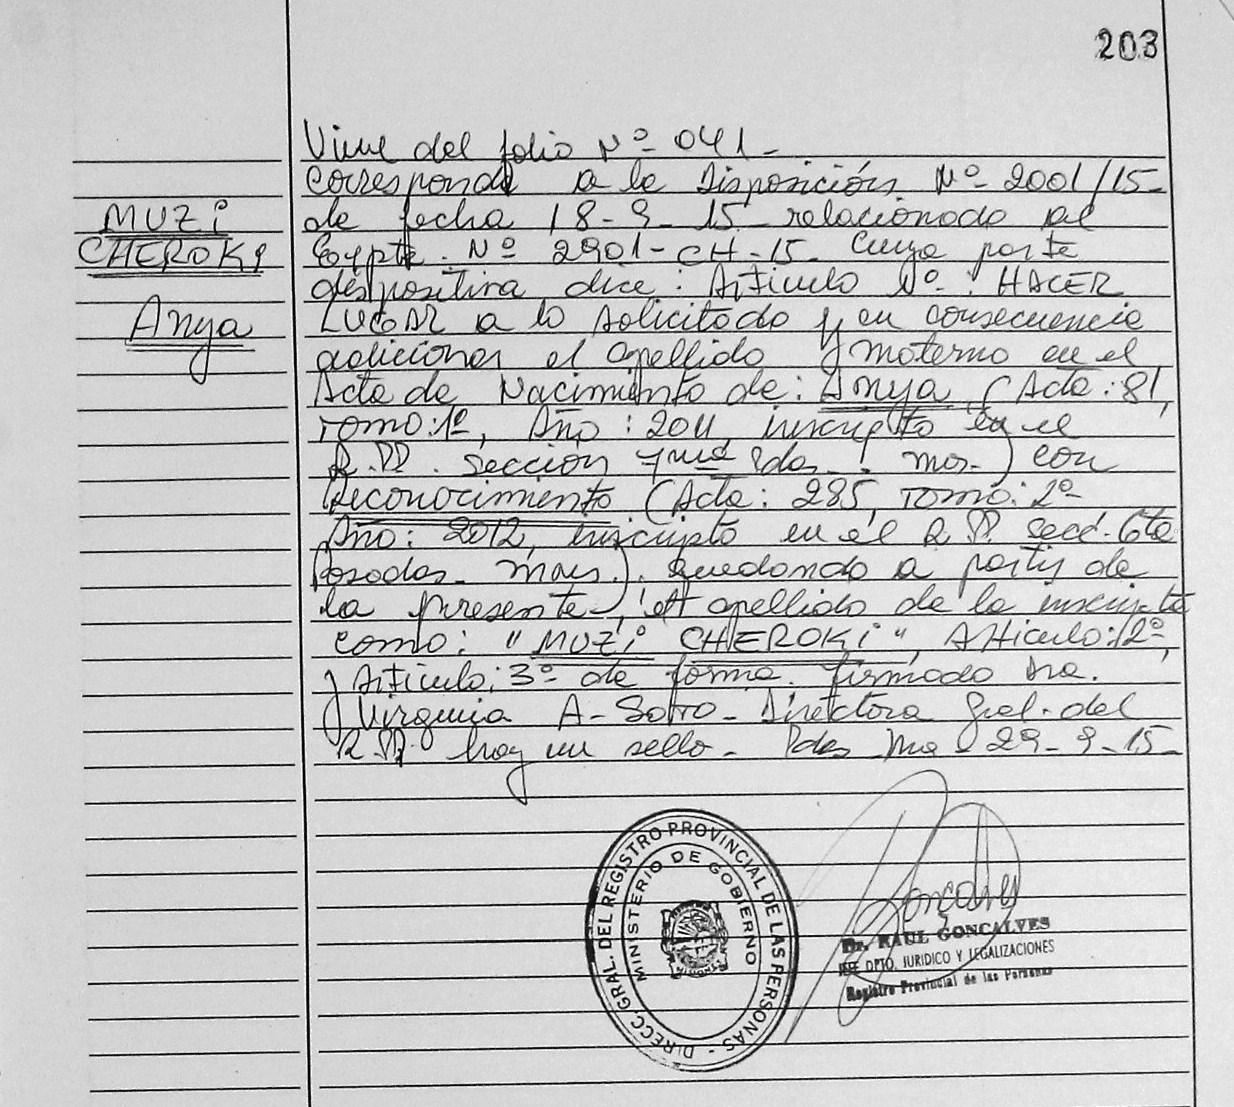 203
Viene del folio Nº 041-
Corresponde a la Disposición Nº 2001/15-
MUZI
de fecha 18-9-15- relacionado al
CHEROKI
Expte. Nº 2901-CH-15- Cuya parte
dispositiva dice: Artículo Nº: HACER
Anya
LUGAR a lo solicitado y en consecuencia
adicionar el apellido materno en el
Acta de Nacimiento de: Anya (Acta: 81,
Tomo: 1º, Año: 2011, inscripto en el
R.PP. Sección 7ma Pdas. Mnes.) con
Reconocimiento (Acta: 285, Tomo: 2º
Año: 2012, inscripto en el R.PP. Secc. 6ta
Posadas- Mnes.). quedando a partir de
la presente, el apellido de la inscripta
como: "MUZI CHEROKI", Artículo: 2º,
y Artículo: 3º de forma. Firmado Dra.
Virginia A- Soto- Directora Gral. del
R.PP. hay un sello- Pdas Mnes 29-9-15-
DIRECC. GRAL. DEL REGISTRO PROVINCIAL DE LAS PERSONAS -
MINISTERIO DE GOBIERNO
MISIONES
Goncalves
Dr. RAUL GONCALVES
JEFE DPTO. JURIDICO Y LEGALIZACIONES
Registro Provincial de las Personas